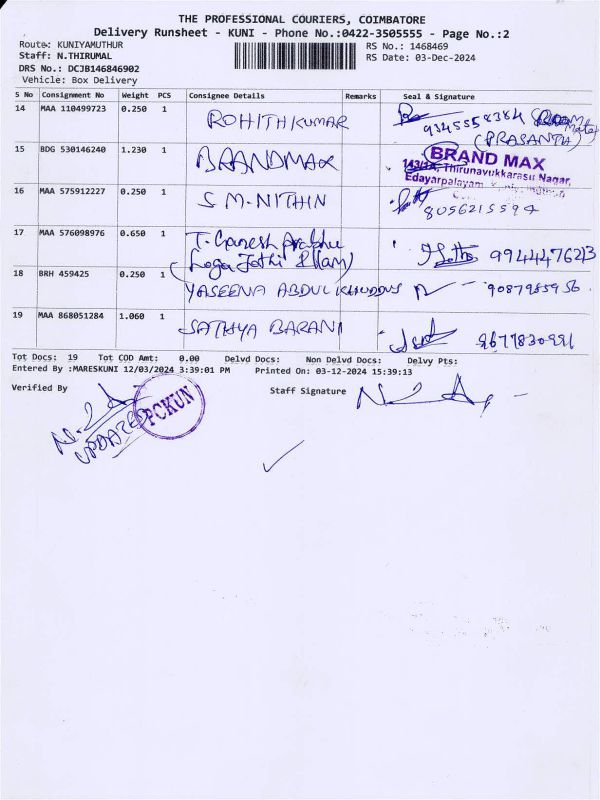 THE PROFESSIONAL COURIERS, COIMBATORE
Delivery Runsheet - KUNI - Phone No.:0422-3505555 - Page No.:2
Route: KUNIYAMUTHUR RS No.: 1468469
Staff: N.THIRUMAL RS Date: 03-Dec-2024
DRS No.: DCJB146846902
Vehicle: Box Delivery
S No Consignment No Weight PCS Consignee Details Remarks Seal & Signature
14 MAA 110499723 0.250 1 ROHITH KUMAR 9345558384 Room Mate
(PRASANTH)
15 BDG 530146240 1.230 1 BRANDMAX BRAND MAX
143/1A, Thirunavukkarasu Nagar,
Edayarpalayam
16 MAA 575912227 0.250 1 S M. NITHIN 8056215594
17 MAA 576098976 0.650 1 T. Ganesh Prabhu 9944476213
(Loga Jothi Illam)
18 BRH 459425 0.250 1 YASEENA ABDUL KHUDDUS 9087985956
19 MAA 868051284 1.060 1 SATHYA BARANI 8677830991
Tot Docs: 19 Tot COD Amt: 0.00 Delvd Docs: Non Delvd Docs: Delvy Pts:
Entered By :MARESKUNI 12/03/2024 3:39:01 PM Printed On: 03-12-2024 15:39:13
Verified By Staff Signature
PCKUN
UPDATED